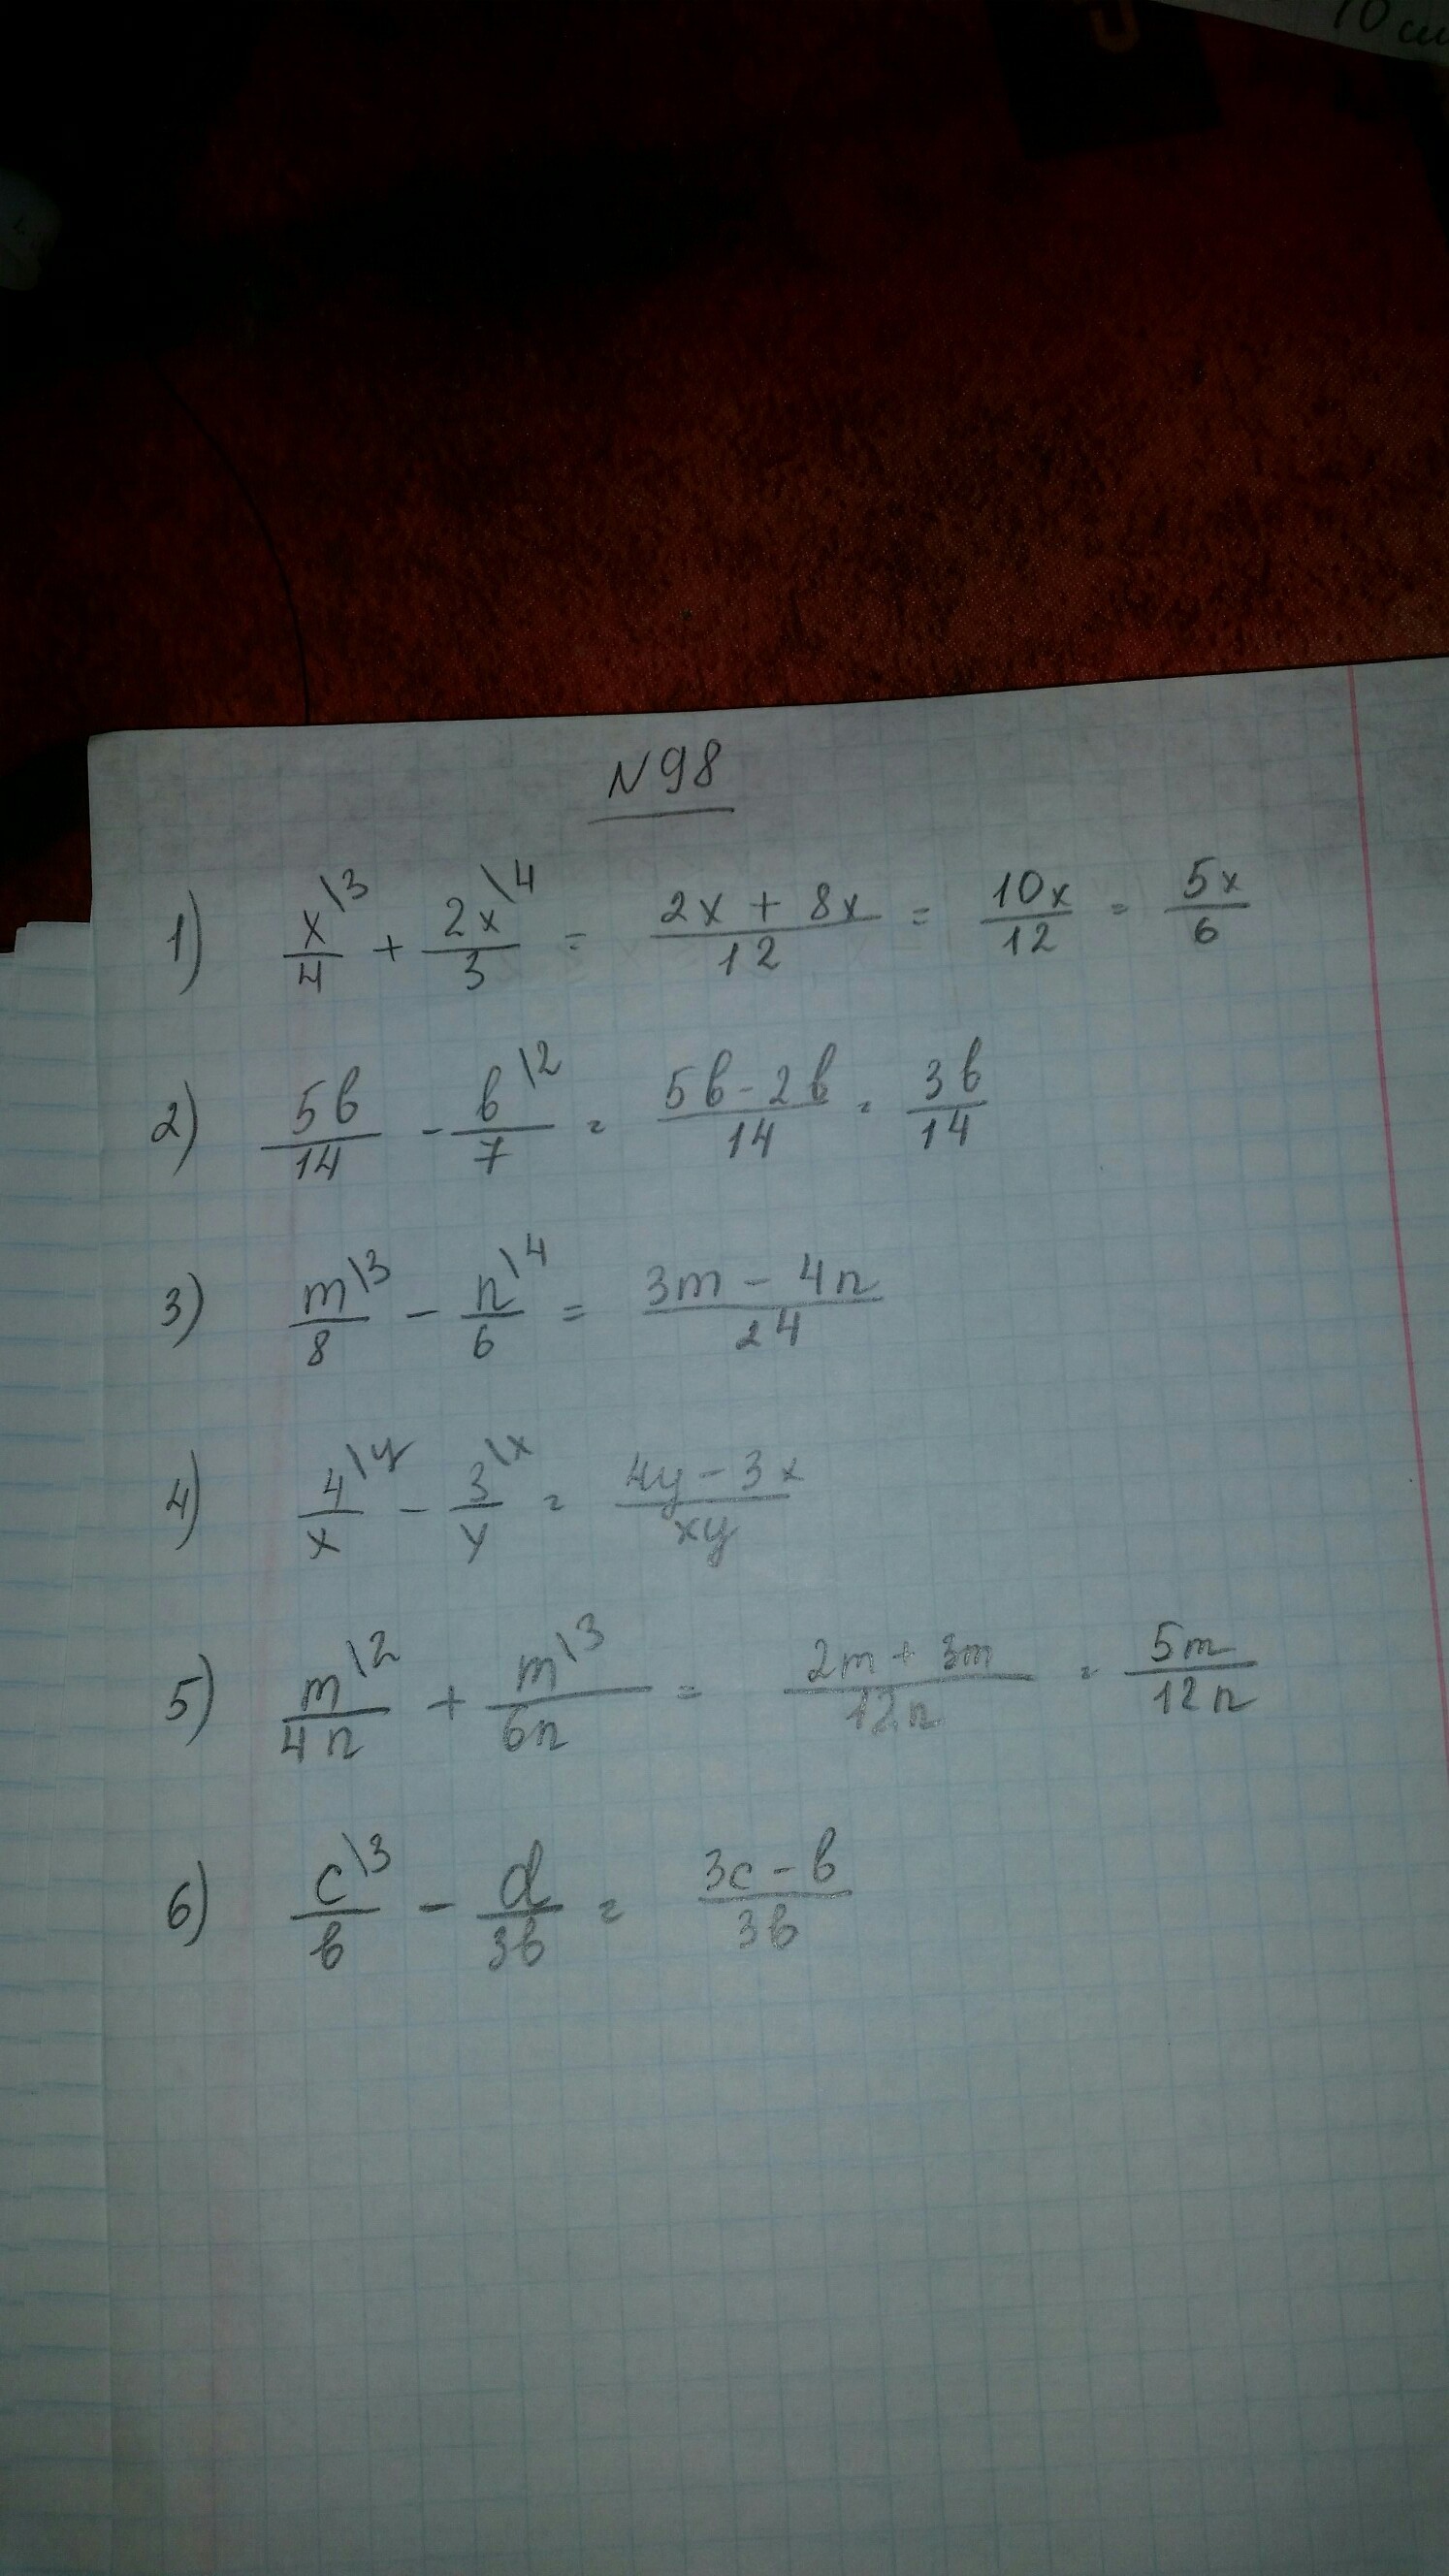 10 см
N98
1) x\3/4 + 2x\4/3 = 2x + 8x/12 = 10x/12 = 5x/6
2) 5b/14 - b\2/7 = 5b - 2b/14 = 3b/14
3) m\3/8 - n\4/6 = 3m - 4n/24
4) 4\y/x - 3\x/y = 4y - 3x/xy
5) m\2/4n + m\3/6n = 2m + 3m/12n = 5m/12n
6) c\3/b - d/3b = 3c - b/3b